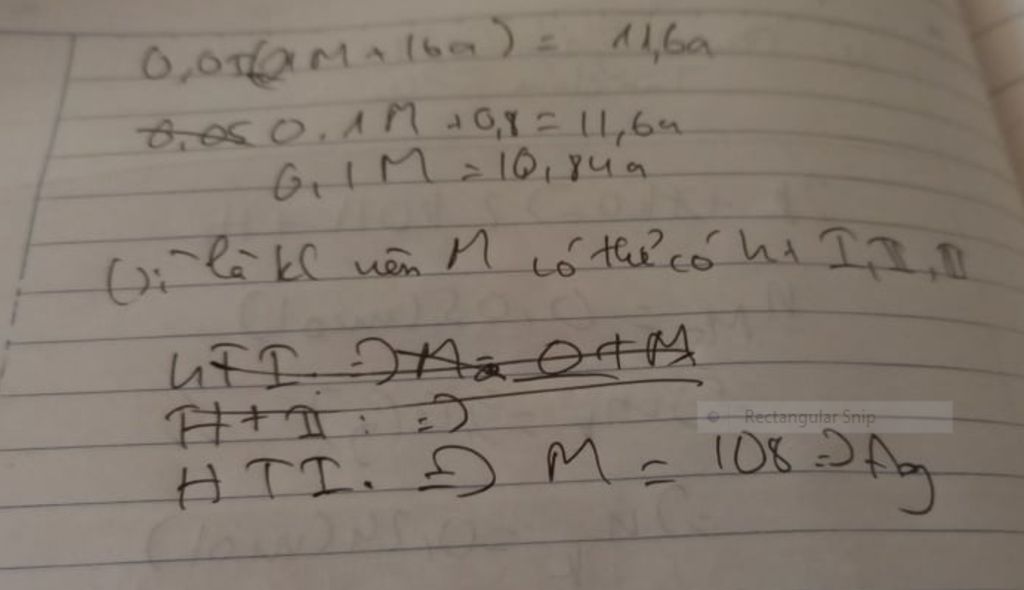 0,05(2M + 16a) = 11,6a
0,05 0.1M + 0,8 = 11,6a
0,1M = 10,84a
Vì là KL nên M có thể có ht I, II, III
HT I. => M =
HT II : =>
Rectangular Snip
HTI. => M = 108 => Ag